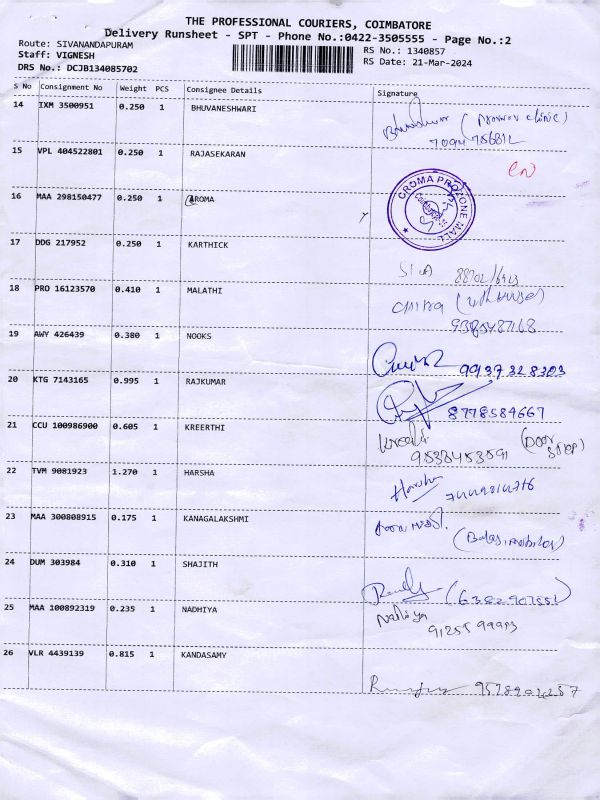 THE PROFESSIONAL COURIERS, COIMBATORE
Delivery Runsheet - SPT - Phone No.:0422-3505555 - Page No.:2
Route: SIVANANDAPURAM RS No.: 1340857
Staff: VIGNESH RS Date: 21-Mar-2024
DRS No.: DCJB134085702
S No Consignment No Weight PCS Consignee Details Signature
14 IXM 3500951 0.250 1 BHUVANESHWARI
15 VPL 404522801 0.250 1 RAJASEKARAN
16 MAA 298150477 0.250 1 CROMA
CROMA PROZONE MALL
17 DDG 217952 0.250 1 KARTHICK
18 PRO 16123570 0.410 1 MALATHI
19 AWY 426439 0.380 1 NOOKS
9937328303
20 KTG 7143165 0.995 1 RAJKUMAR
8778584667
21 CCU 100986900 0.605 1 KREERTHI
(DOOR STEP)
22 TVM 9081923 1.270 1 HARSHA
Harsha
23 MAA 300808915 0.175 1 KANAGALAKSHMI
24 DUM 303984 0.310 1 SHAJITH
25 MAA 100892319 0.235 1 NADHIYA
Nadhiya
26 VLR 4439139 0.815 1 KANDASAMY